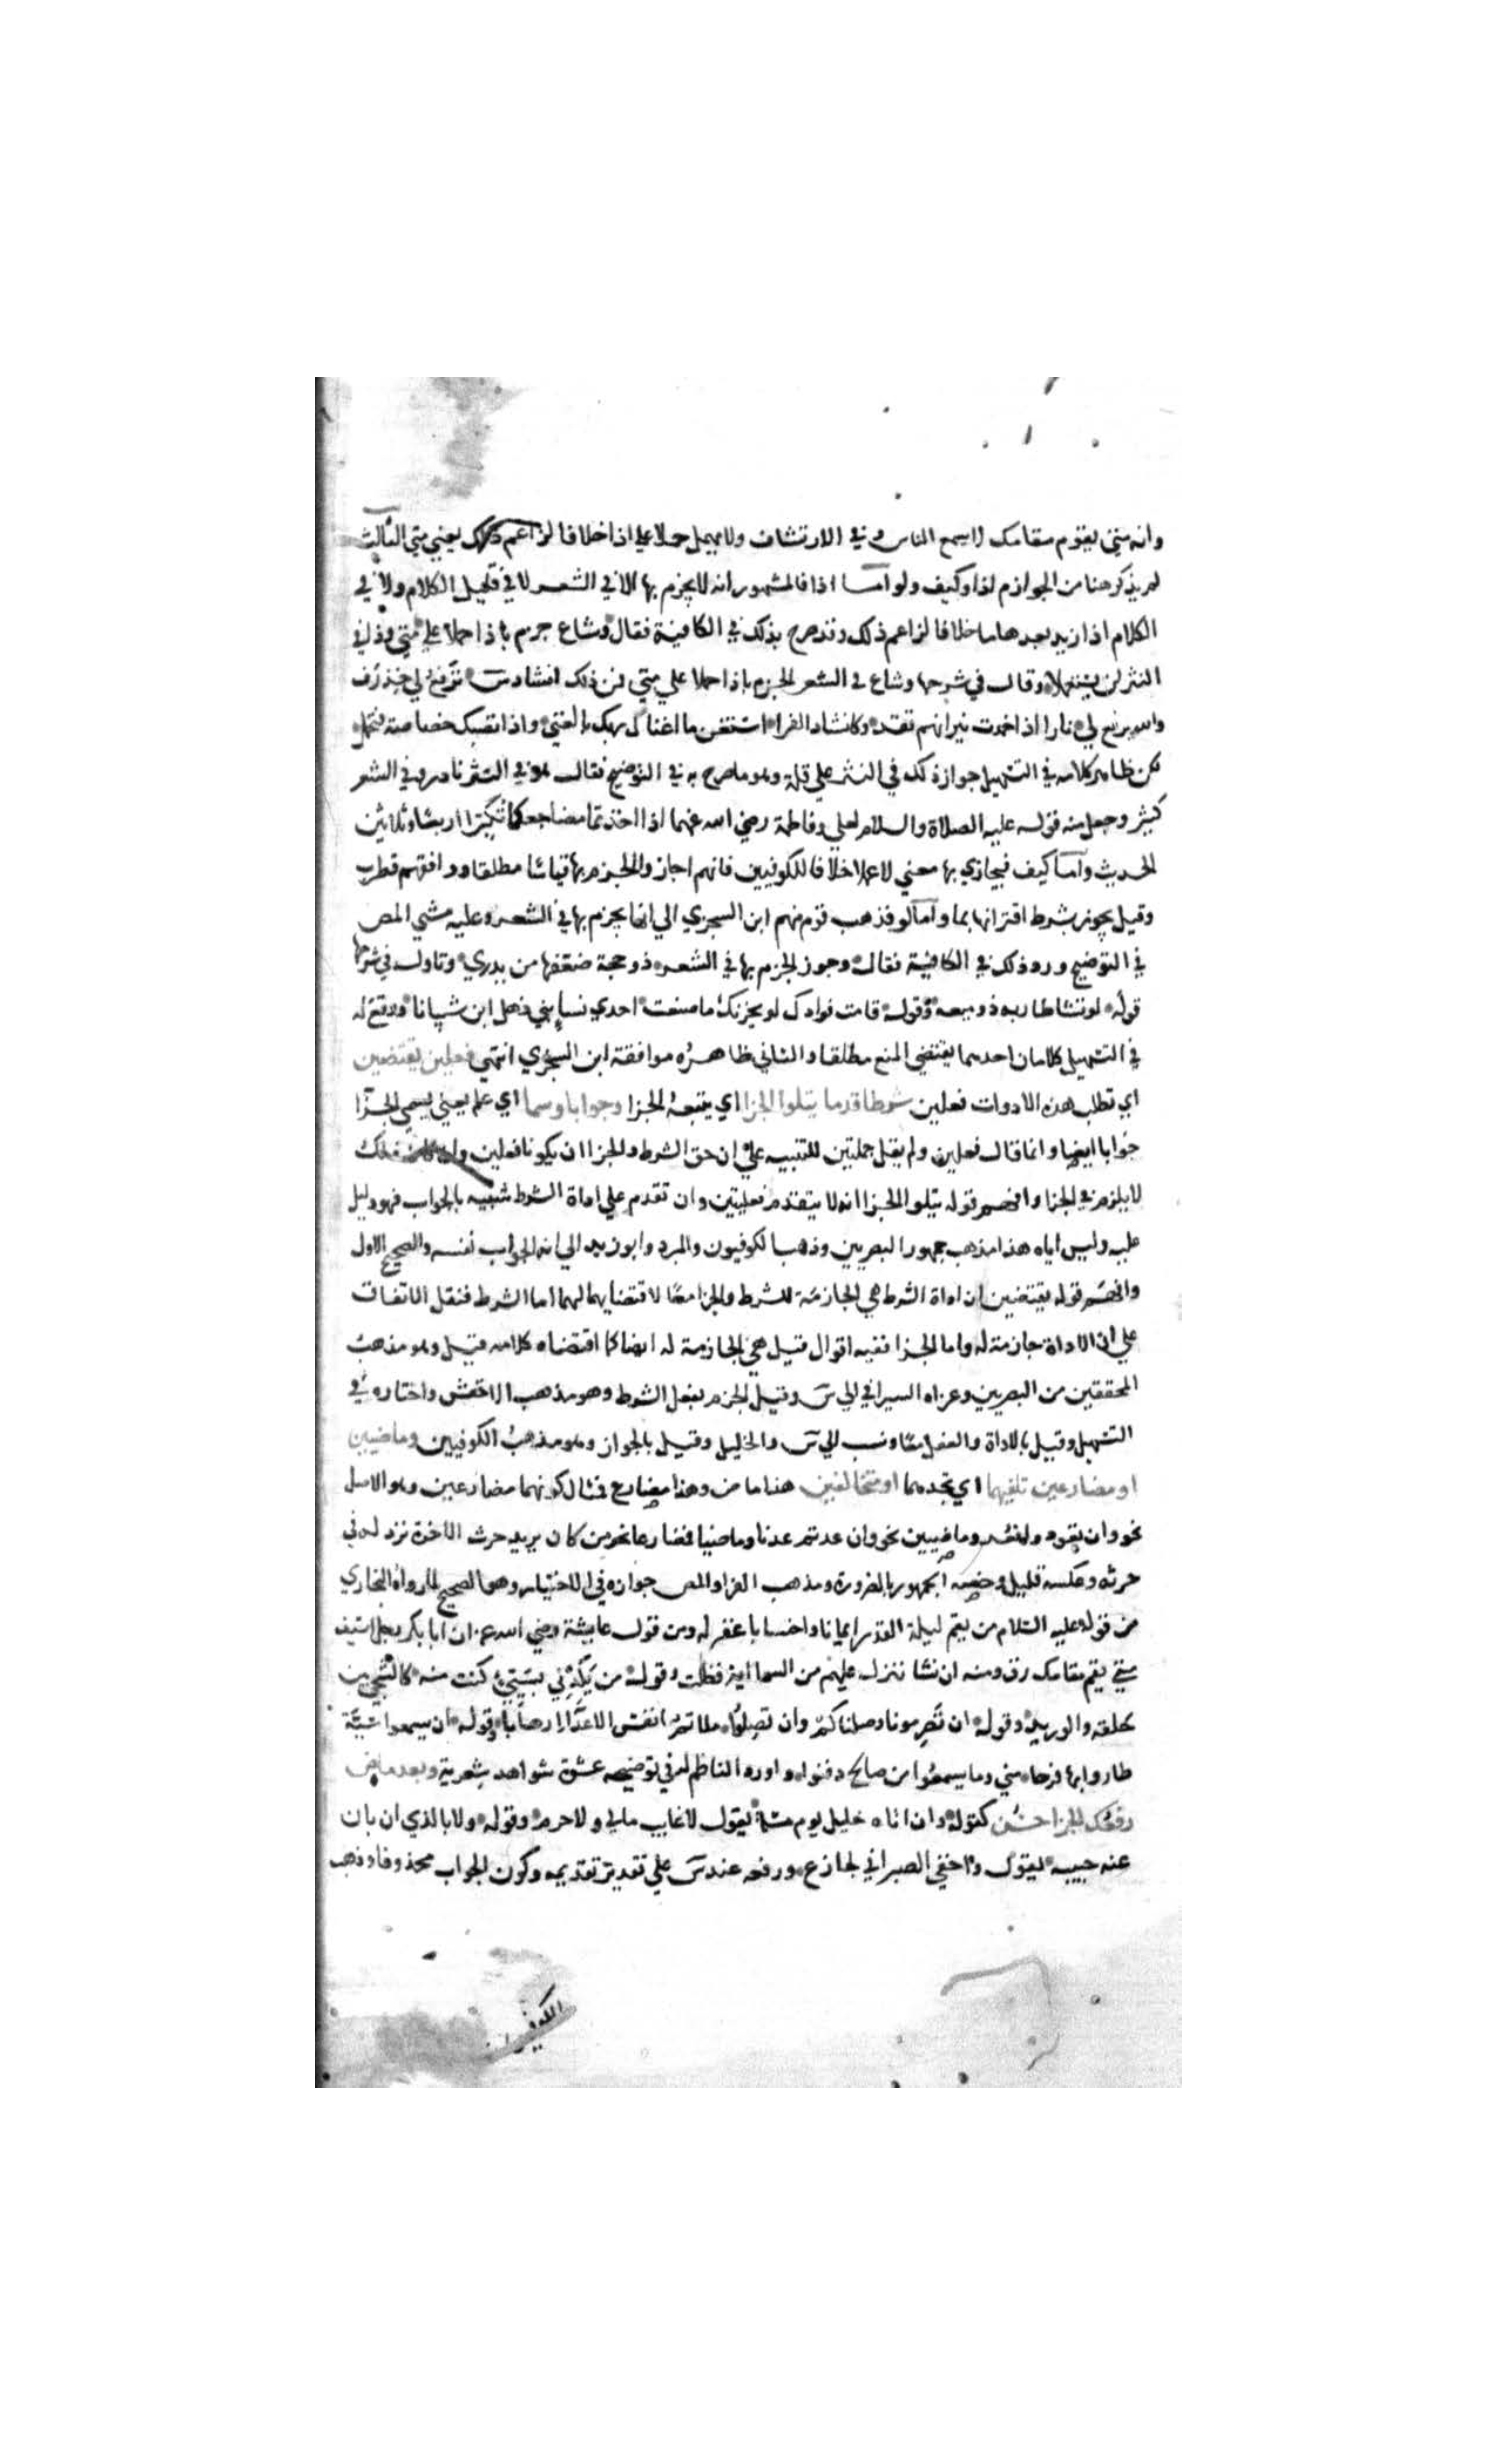 وانه متى يقوم مقامك لا يسمع الناس وفي الارتشاف ولا تهمل حملا علي اذا خلافا لزاعم ذلك يعني متي الثالث
لم يذكر هنا من الجوازم اذا وكيف ولو اما اذا فالمشهور انه لا يجزم بها الا في الشعر لا في قليل الكلام ولا في
الكلام اذا زيد بعدها ما خلافا لزاعم ذلك وقد صرح بذلك في الكافية فقال وشاع جزم باذا حملا علي متي وذا في
النثر لن يستعملا وقال في شرحها وشاع في الشعر الجزم باذا حملا علي متي فمن ذلك انشاد س ترفع لي خندف
والله يرفع لي نارا اذا خمدت نيرانهم تقد وكانشاد الفرا استغن ما اغناك ربك بالغني واذا تصبك خصاصة فتحمل
لكن ظاهر كلامه في التسهيل جواز ذلك في النثر علي قلة وهو ما صرح به في التوضيح فقال هو في النثر نادر وفي الشعر
كثير وجعل منه قوله عليه الصلاة والسلام لعلي وفاطمة رضي الله عنهما اذا اخذتما مضاجعكما تكبرا اربعا وثلاثين
الحديث واما كيف فيجازي بها معني لا عملا خلافا للكوفيين فانهم اجازوا الجزم بها قياسا مطلقا ووافقهم قطرب
وقيل يجوز بشرط اقترانها بما واما لو فذهب قوم منهم ابن السجري الي انها يجزم بها في الشعر وعليه مشي المص
في التوضيح ورد ذلك في الكافية فقال وجوز الجزم بها في الشعر ذو حجة ضعفها من يدري وتاول في شرحها
قوله لو نشا طار به ذو ميعة وقوله تامت فوادك لو يحزنك ما صنعت احدي نسا بني ذهل ابن شيبانا ووقع له
في التسهيل كلامان احدهما يقتضي المنع مطلقا والثاني ظاهره موافقة ابن السجري انتهي فعلين يقتضين
اي تطلب هذه الادوات فعلين شرط قدما يتلوا الجزا اي يتبعه الجزا وجوابا وسما اي علم يعني يسمي الجزا
جوابا ايضا وانما قال فعلين ولم يقل جملتين للتنبيه علي ان حق الشرط والجزا ان يكونا فعلين وان كان ذلك
لا يلزم في الجزا وافهم قوله يتلوا الجزا انه لا يتقدم فعليتين وان تقدم علي اداة الشرط شبيه بالجواب فهو دليل
عليه وليس اياه هذا مذهب جمهور البصريين وذهب الكوفيون والمبرد وابو زيد الي انه الجواب نفسه والصحيح الاول
وافهم قوله يقتضين ان اداة الشرط هي الجازمة للشرط والجزا معا لاقتضايها لهما اما الشرط فنقل الاتفاق
علي ان الاداة جازمة له واما الجزا ففيه اقوال قيل هي الجازمة له ايضا كما اقتضاه كلامه قيل وهو مذهب
المحققين من البصريين وعزاه السيرافي الي س وقيل الجزم بفعل الشرط وهو مذهب الاخفش واختاره في
التسهيل وقيل بالاداة والفعل معا ونسب الي س والخليل وقيل بالجوار وهو مذهب الكوفيين وماضيين
او مضارعين تلفيهما اي تجدهما او متخالفين هذا ماض وهذا مضارع فمثال كونهما مضارعين وهو الاصل
نحو وان تعودوا نعد وماضيين نحو وان عدتم عدنا وماضيا فمضارعا نحو من كان يريد حرث الاخرة نزد له في
حرثه وعكسه قليل وخصه الجمهور بالضرورة ومذهب الفرا والمص جوازه في الاختيار وهو الصحيح لما رواه البخاري
من قوله عليه السلام من يقم ليلة القدر ايمانا واحتسابا غفر له ومن قول عايشة رضي الله عنها ان ابا بكر رجل اسيف
متي يقم مقامك رق ومنه ان نشا ننزل عليهم من السما اية فظلت وقوله من يكدني بسيئ كنت منه كالشجي بين
حلقه والوريد وقوله ان تصرمونا وصلناكم وان تصلوا ملاتم انفس الاعدا ارهابا وقوله ان يسمعوا سبة
طاروا بها فرحا مني وما يسمعوا من صالح دفنوا واورد الناظم له في توضيحه عشرة شواهد شعرية وبعد ماض
رفعك الجزا حسن كقوله وان اتاه خليل يوم مسالة يقول لا غايب مالي ولا حرم وقوله ولا بالذي ان بان
عنه حبيبه يقول واخفي الصبر اني لجازع ورفعه عند س علي تقدير تقديمه وكون الجواب محذوفا وذهب
الكوفيون